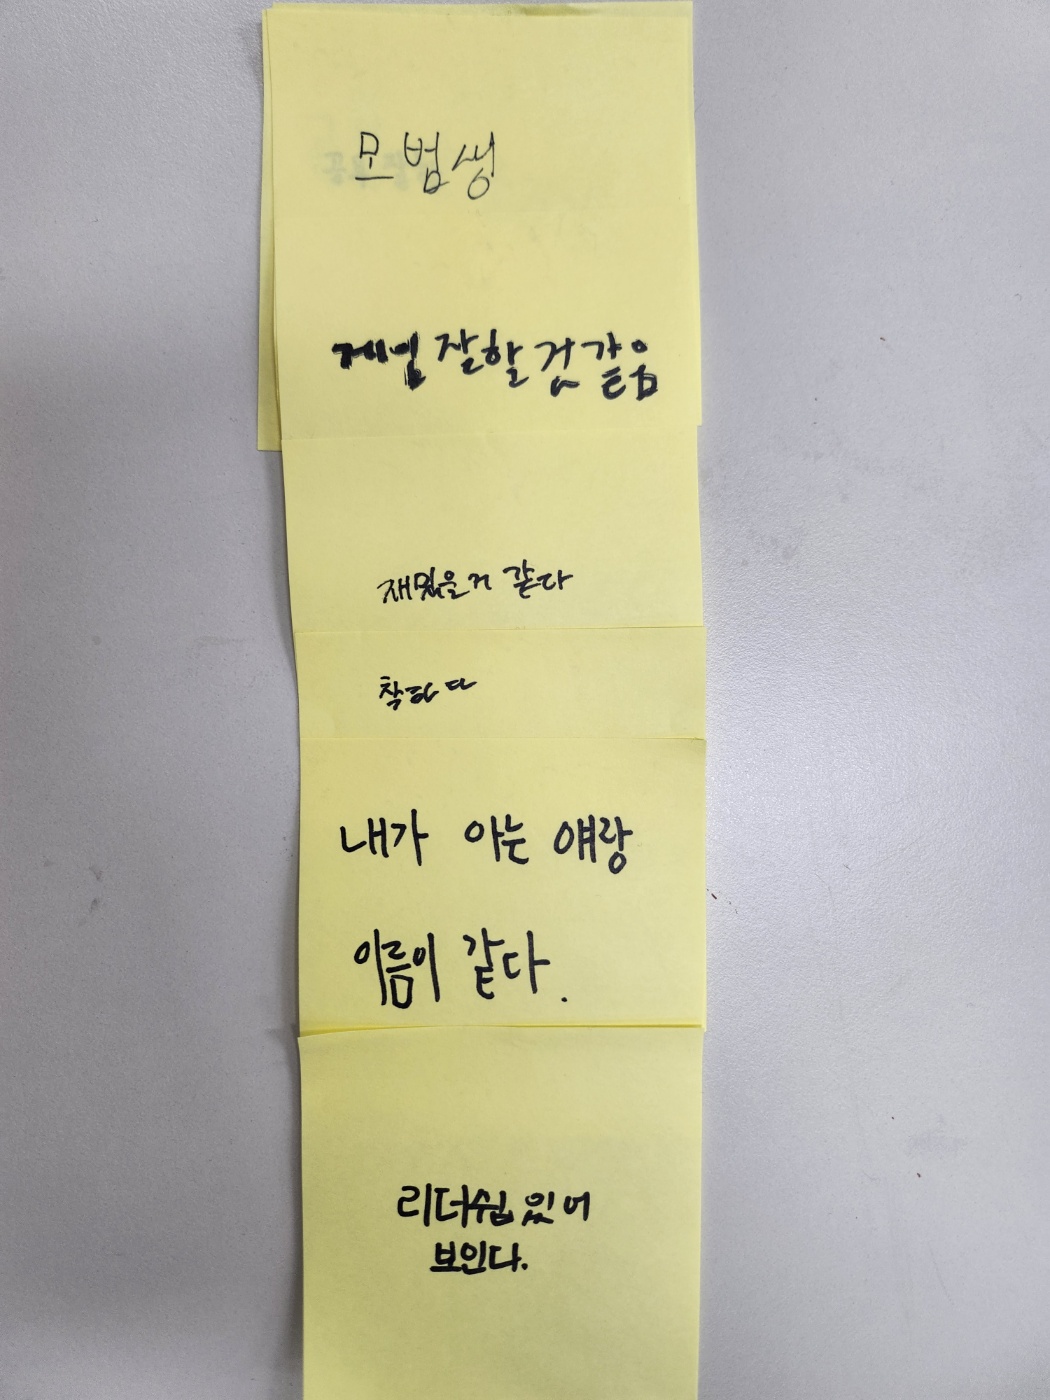 모범생
게임 잘할 것 같음
재밌을거 같다
착하다
내가 아는 얘랑
이름이 같다.
리더쉽 있어
보인다.